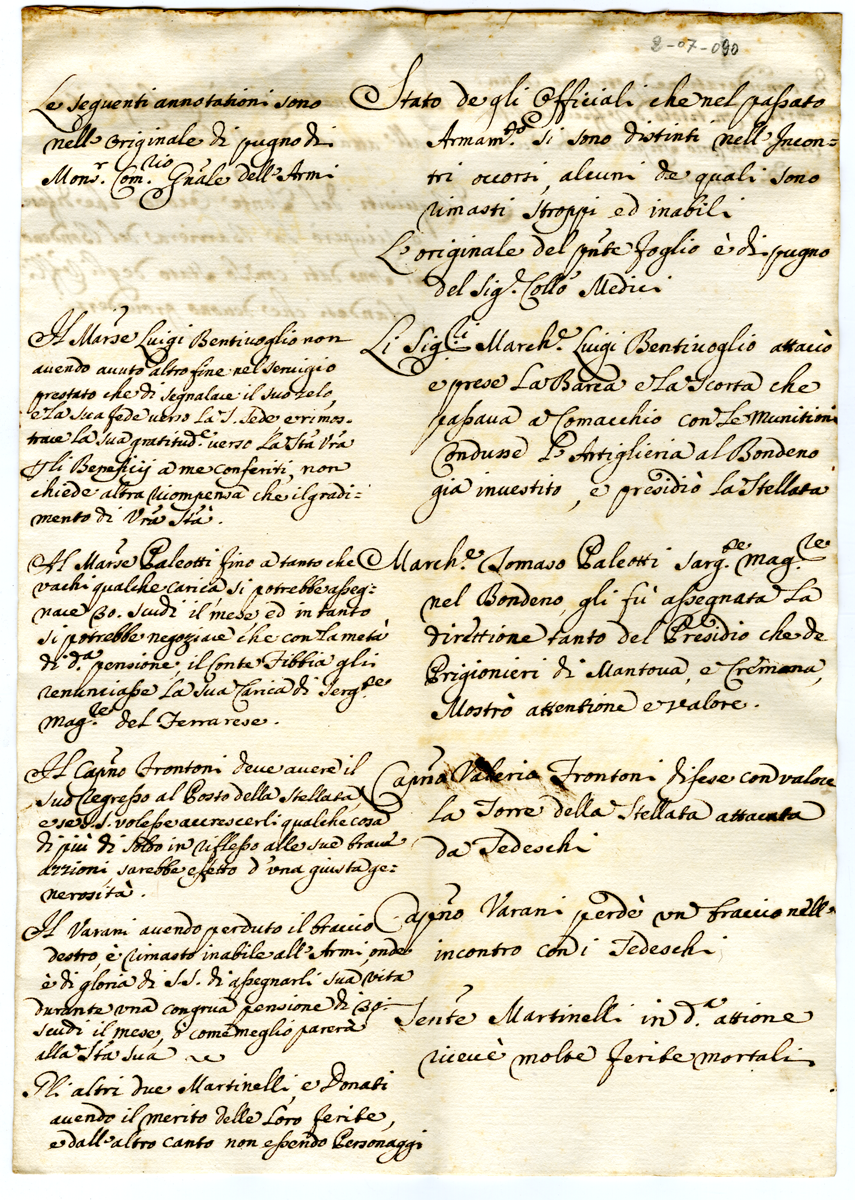 2-07-090
Le seguenti annotationi sono
nell'originale di pugno di
Monsr. Comrio Gnale dell'Armi
Stato degli Officiali che nel passato
Armamto si sono distinti nell'Incon-
tri occorsi, alcuni de quali sono
rimasti stroppi ed inabili
L'originale del pnte foglio è di pugno
del Sigr Collo Medici
Il Marse Luigi Bentivoglio non
avendo avuto altro fine nel servigio
prestato che di segnalare il suo zelo,
e la sua fede verso la S. Sede e rimos-
trare la sua gratitude verso la Stà Vra
gli Beneficij a me conferiti, non
chiede altra ricompensa che il gradi-
mento di Vra Stà.
Li Sigri March.e Luigi Bentivoglio attaccò
e prese la Barca e la scorta che
passava a Comacchio con le munitioni
Condusse l'Artiglieria al Bondeno
già investito, e presidiò la Stellata
Al Marse Paleotti fino a tanto che
vachi qualche carica si potrebbe asseg-
nare 30. scudi il mese ed in tanto
si potrebbe negoziare che con la metà
di d.a pensione, il Conte Fibbia gli
renunciasse la sua Carica di Sergte
magre del Ferrarese.
March.e Tomaso Paleotti sargte magre
nel Bondeno, gli fù assegnata la
direttione tanto del Presidio che de
Prigionieri di Mantova, e Cremona,
Mostrò attentione e valore.
Il Capno Frontoni deve avere il
suo regresso al Posto della Stellata,
e se S.S. volesse accrescerli qualche cosa
di più di soldo in riflesso alle sue brave
azzioni, sarebbe effetto d'una giusta ge-
nerosità.
Capno Valerio Frontoni difese con valore
la Torre della Stellata attaccata
da Tedeschi
Il Varani avendo perduto il braccio
destro, è rimasto inabile all'Armi, onde
è di gloria di S.S. di assegnarli sua vita
durante una congrua pensione di 30.
scudi il mese, ò come meglio parerà
alla Stà Sua
Capno Varani perdè un braccio nell'
incontro con i Tedeschi
Tente Martinelli in d.a attione
ricevè molte ferite mortali
Gli altri due Martinelli, e Donati
avendo il merito delle loro ferite,
e dall'altro canto non essendo Personaggi